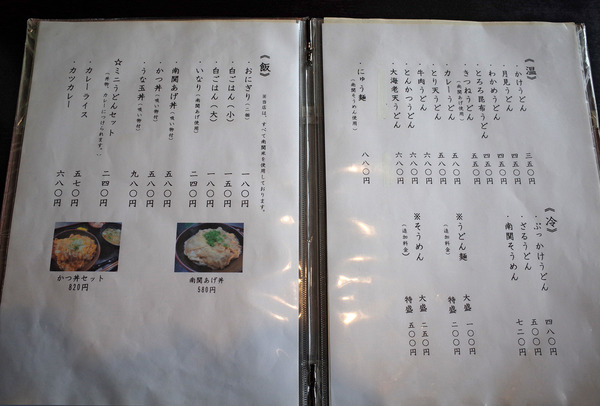 《温》
・かけうどん 三五〇円
・月見うどん 四五〇円
・わかめうどん 四五〇円
・とろろ昆布うどん 四五〇円
・きつねうどん 五五〇円
(南関あげ使用)
・カレーうどん 五八〇円
・とり天うどん 五八〇円
・牛肉うどん 六八〇円
・とんかつうどん 六八〇円
・大海老天うどん 六八〇円
・にゅう麺
(南関そうめん使用)
《冷》
・ぶっかけうどん 四八〇円
・ざるうどん 五〇〇円
・南関そうめん 七二〇円
※うどん麺 大盛 一〇〇円
(追加料金) 特盛 二〇〇円
※そうめん 大盛 二五〇円
(追加料金) 特盛 五〇〇円
《飯》
※当店は、すべて南関米を使用しております。
・おにぎり(二個) 一八〇円
・白ごはん(小) 一五〇円
・白ごはん(大) 一八〇円
・いなり(南関あげ使用) 二四〇円
南関あげ丼(吸い物付) 五八〇円
・かつ丼(吸い物付) 五八〇円
・うな玉丼(吸い物付) 九八〇円
☆ミニうどんセット 二四〇円
(丼物、カレーにつけられます。)
・カレーライス 五七〇円
・カツカレー 六八〇円
南関あげ丼
580円
かつ丼セット
820円